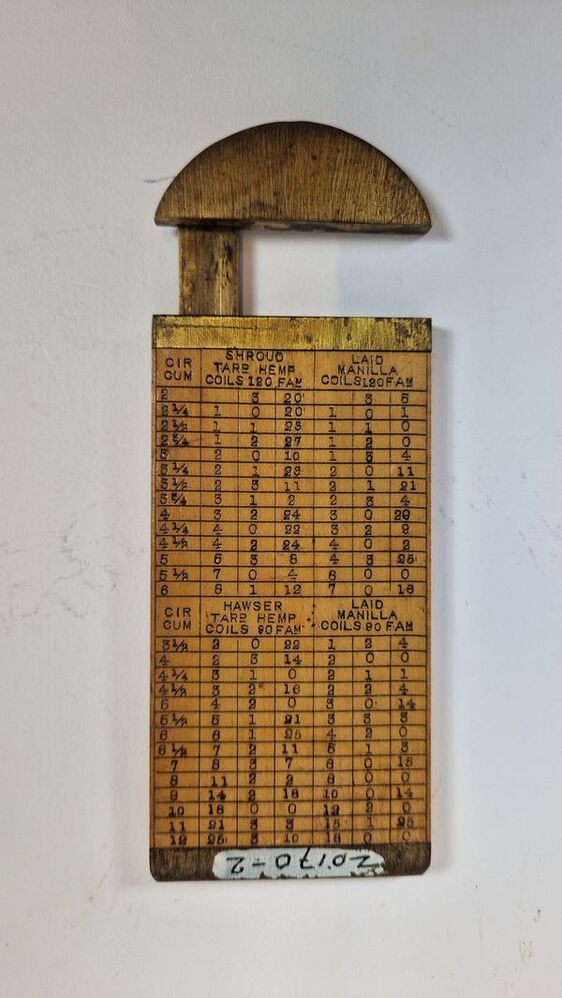 CIR SHROUD LAID
CUM TARD HEMP MANILLA
COILS 120 FAM COILS 120 FAM
2 3 20 3 5
2 1/4 1 0 20 1 0 1
2 1/2 1 1 23 1 1 0
2 3/4 1 2 27 1 2 0
3 2 0 10 1 3 4
3 1/4 2 1 23 2 0 11
3 1/2 2 3 11 2 1 21
3 3/4 3 1 2 2 3 4
4 3 2 24 3 0 20
4 1/4 4 0 22 3 2 8
4 1/2 4 2 24 4 0 2
5 5 3 8 4 3 25
5 1/2 7 0 4 6 0 0
6 8 1 12 7 0 16
CIR HAWSER LAID
CUM TARD HEMP MANILLA
COILS 90 FAM COILS 90 FAM
3 1/2 2 0 22 1 2 4
4 2 3 14 2 0 0
4 1/4 3 1 0 2 1 1
4 1/2 3 2 16 2 2 4
5 4 2 0 3 0 14
5 1/2 5 1 21 3 3 3
6 6 1 25 4 2 0
6 1/2 7 2 11 5 1 3
7 8 3 7 6 0 15
8 11 2 2 8 0 0
9 14 2 18 10 0 14
10 18 0 0 12 2 0
11 21 3 3 15 1 25
12 25 3 10 18 0 0
20170-2